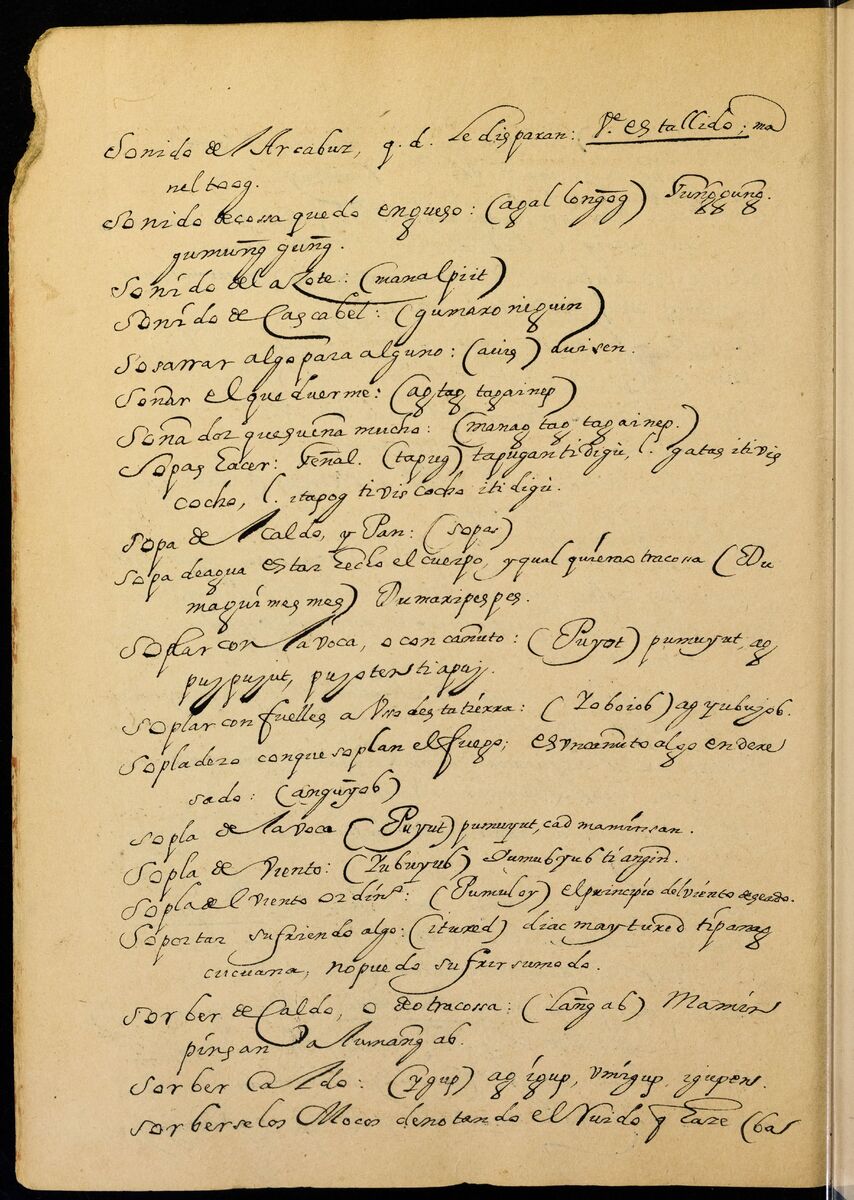 Sonido de Arcabuz, q. d. Le disparan: Vᵉ. estallido; ma
nel toog.
Sonido de cossa quedo en gueso: (agal long̃og) Sung̃gung̃.
gumung̃ gung̃.
Sonído del azote: (manalpiit)
Sonído de Cascabel: (gumaro niguin)
Sosarrar algo para alguno: (auis) auisen.
Soñar el que duerme: (agtag tagainep)
Soñador que sueña mucho: (managtag tagainep.)
Sopas hacer: Señal. (tapug) tapugan ti digù, l. gatas iti vis
cocho, l. itapog ti vis cocho iti digù.
Sopa de caldo, y Pan: (sopas)
Sopa de agua estar hecho el cuerpo, y qual quiera otra cossa (Du
maguimesmes) Dumaripespes.
Soplar con la voca, o con cañuto: (Puyot) pumuyut, ag
puypuyut, puyoten ti apuy.
Soplar con fuelles a Vso desta tierra: (Yoboiob) ag yubuyob.
Sopladero con que soplan el fuego; es vn cañuto algo endere
sado: (ang̃uyob)
Sopla de la voca (Puyut) pumuyut, cad mamínsan.
Sopla de Viento: (Yubuyub) Yumubyub ti ang̃in.
Sopla del viento ordinº: (Pumuloy) el principio del viento deseado.
Soportar sufriendo algo: (itured) diac maytured ti panag
cucuana, no puedo sufrir su modo.
Sorber de Caldo, o de otra cossa: (Lang̃ab) Mamin
pinsan a lumang̃ab.
Sorber Caldo: (ygup) ag ígup, vmígup, igupens.
Sorberse los Mocos denotando el Ruido q haze (bas